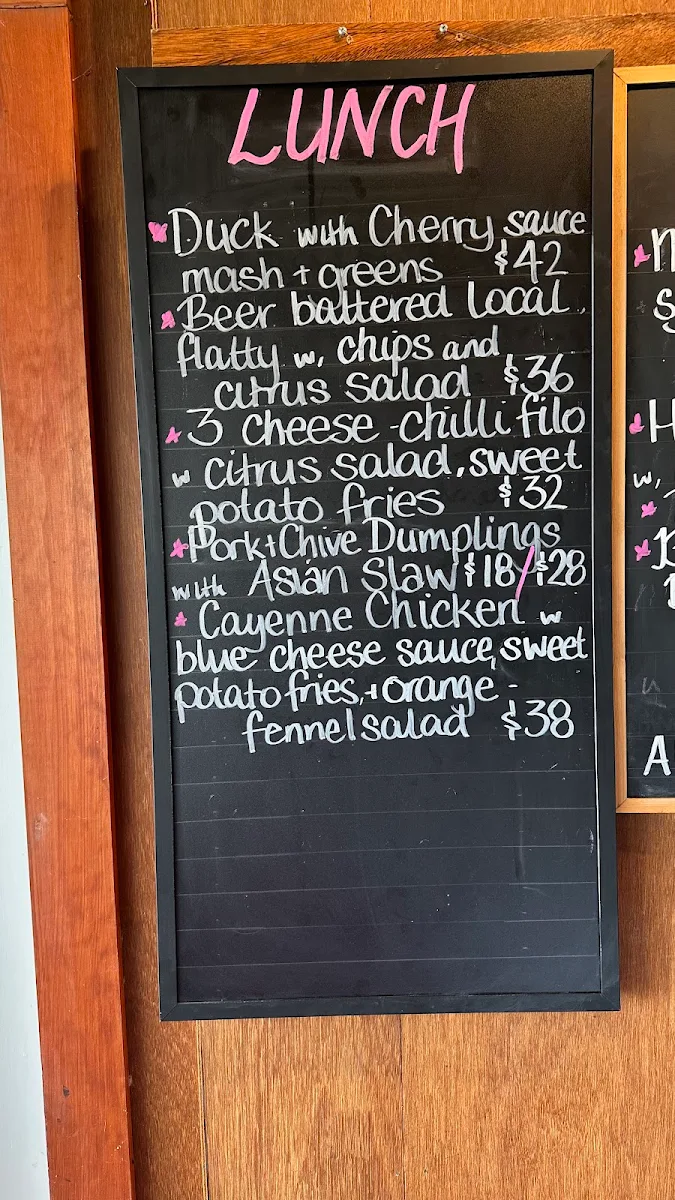 LUNCH
Duck with Cherry sauce
mash + greens $42
Beer battered local
flatty w, chips and
citrus salad $36
3 cheese - chilli filo
w citrus salad, sweet
potato fries $32
Pork + Chive Dumplings
with Asian Slaw $18/$28
Cayenne Chicken w
blue cheese sauce, sweet
potato fries, + orange -
fennel salad $38
w,